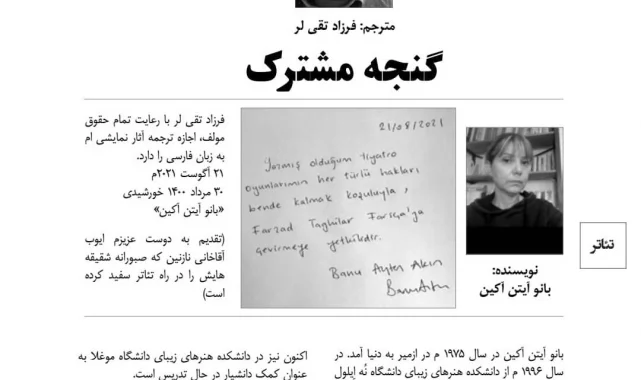 مترجم: فرزاد تقی لر
گنجه مشترک
فرزاد تقی لر با رعایت تمام حقوق
مولف، اجازه ترجمه آثار نمایشی ام
به زبان فارسی را دارد.
۲۱ آگوست ۲۰۲۱م
۳۰ مرداد ۱۴۰۰ خورشیدی
«بانو آیتن آکین»
(تقدیم به دوست عزیزم ایوب
آقاخانی نازنین که صبورانه شقیقه
هایش را در راه تئاتر سفید کرده
است)
21/08/2021
Yazmış olduğum tiyatro
oyunlarımın her türlü hakları
bende kalmak koşuluyla,
Farzad Taghilar Farsça'ya
çevirmeye yetkilidir.
Banu Ayten Akın
نویسنده:
بانو آیتن آکین
تئاتر
بانو آیتن آکین در سال ۱۹۷۵ م در ازمیر به دنیا آمد. در
سال ۱۹۹۶ م از دانشکده هنرهای زیبای دانشگاه نُه اِیلول
اکنون نیز در دانشکده هنرهای زیبای دانشگاه موغلا به
عنوان کمک دانشیار در حال تدریس است.